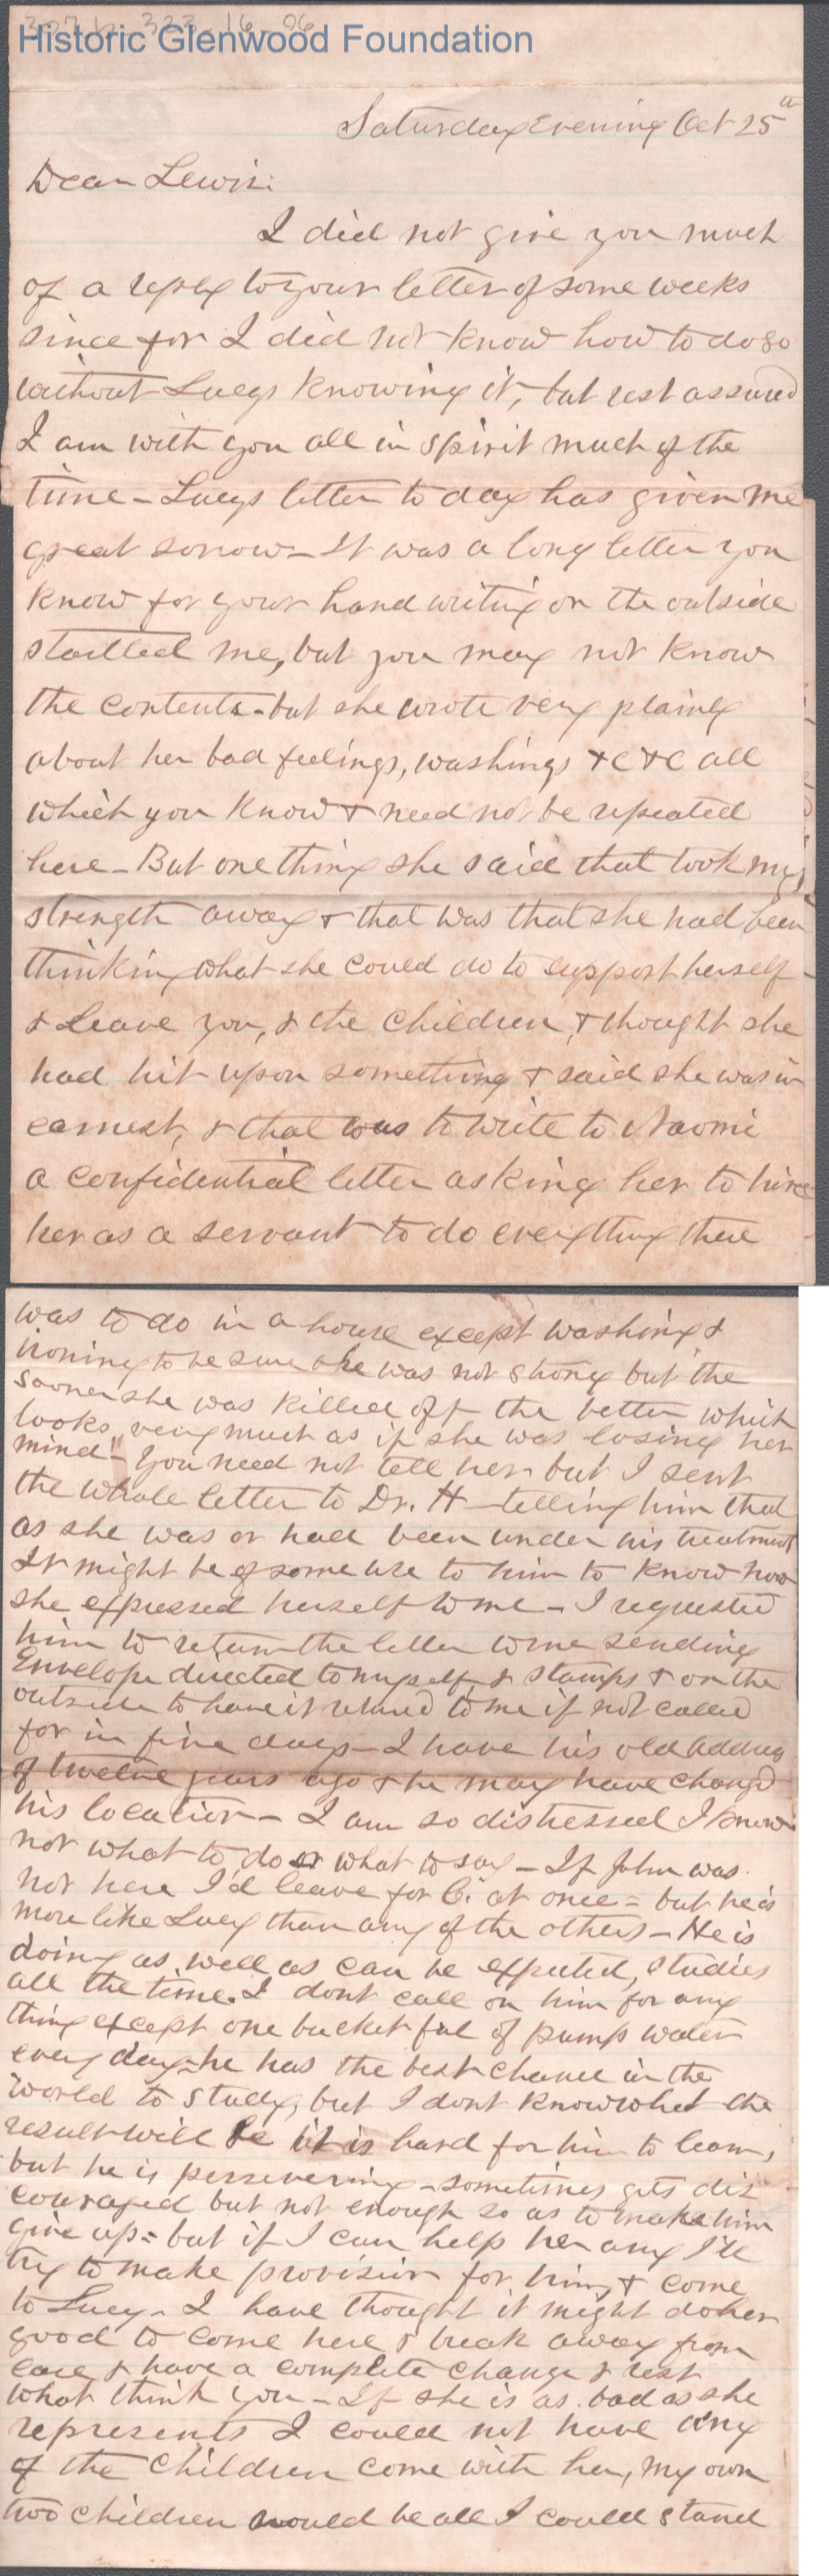 307 b 323-16-06
Historic Glenwood Foundation
Saturday Evening Oct 25th
Dear Lewis:
I did not give you much
of a reply to your letter of some weeks
since for I did not know how to do so
without Lucys knowing it, but rest assured
I am with you all in spirit much of the
time - Lucys letter to day has given me
great sorrow - It was a long letter you
know for your hand writing on the outside
startled me, but you may not know
the contents - but she wrote very plainly
about her bad feelings, washings &c &c all
which you know & need not be repeated
here - But one thing she said that took my
strength away & that was that she had been
thinking what she could do to support herself
& leave you, & the children, & thought she
had hit upon something & said she was in
earnest, & that was to write to Naomi
a confidential letter asking her to hire
her as a servant to do everything there
was to do in a house except washing &
ironing to be sure she was not strong but "the
sooner she was killed off the better which
looks very much as if she was losing her
mind" - You need not tell her but I sent
the whole letter to Dr. H - telling him that
as she was or had been under his treatment
It might be of some use to him to know how
she expressed herself to me - I requested
him to return the letter to me sending
Envelope directed to myself & stamps & on the
outside to have it returnd to me if not called
for in five days - I have his old address
of twelve years ago & he may have changd
his location - I am so distressed I know
not what to do or what to say - If John was
not here I'd leave for C. at once = but he is
more like Lucy than any of the others - He is
doing as well as can be expected, studies
all the time. I dont call on him for any
thing except one bucket ful of pump water
every day - he has the best chance in the
world to study, but I dont know what the
result will be it is hard for him to learn,
but he is persevering - sometimes gets dis
couraged but not enough so as to make him
give up = but if I can help her any I'll
try to make provision for him, & come
to Lucy - I have thought it might do her
good to come here & break away from
care & have a complete change & rest
what think you - If she is as bad as she
represents I could not have any
of the children come with her, my own
two children would be all I could stand